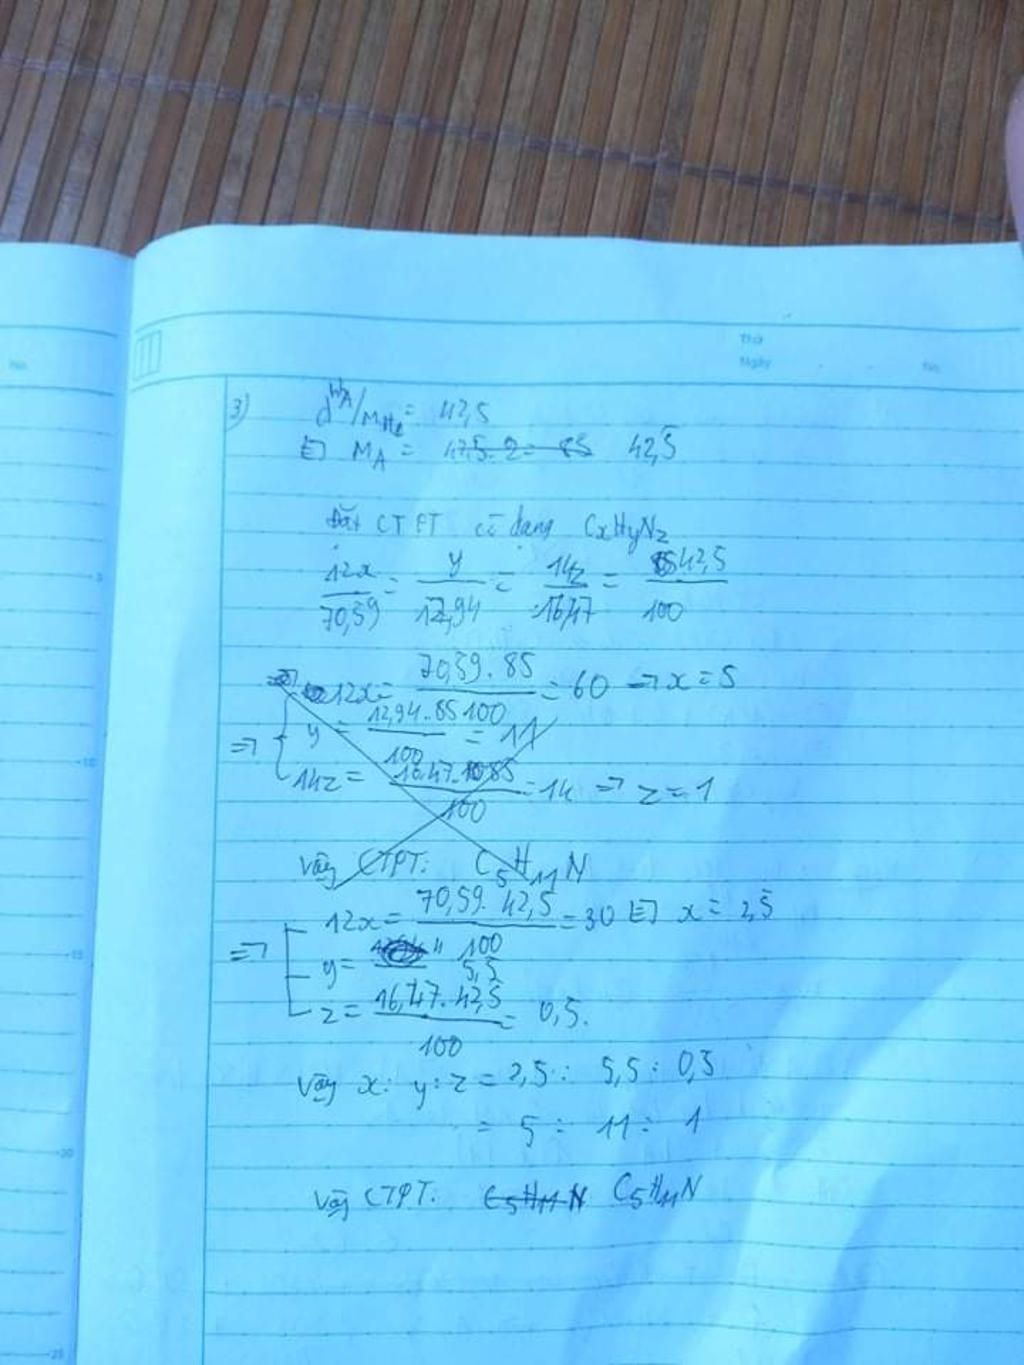 Thứ
Ngày No.
No.
3) d MA/MH2 = 42,5
MA = 42,5.2 = 85 42,5
Đặt CTPT có dạng CxHyNz
12x/70,59 = y/12,94 = 14z/16,47 = 42,5/100
12x = 70,59.85/100 = 60 → x = 5
⇒ y = 12,94.85/100 = 11
14z = 16,47.85/100 = 14 ⇒ z = 1
Vậy CTPT: C5H11N
12x = 70,59.42,5/100 = 30 x = 2,5
⇒ y = 5,5
z = 16,47.42,5/100 = 0,5.
Vậy x : y : z = 2,5 : 5,5 : 0,5
= 5 : 11 : 1
Vậy CTPT: C5H11N C5H11N